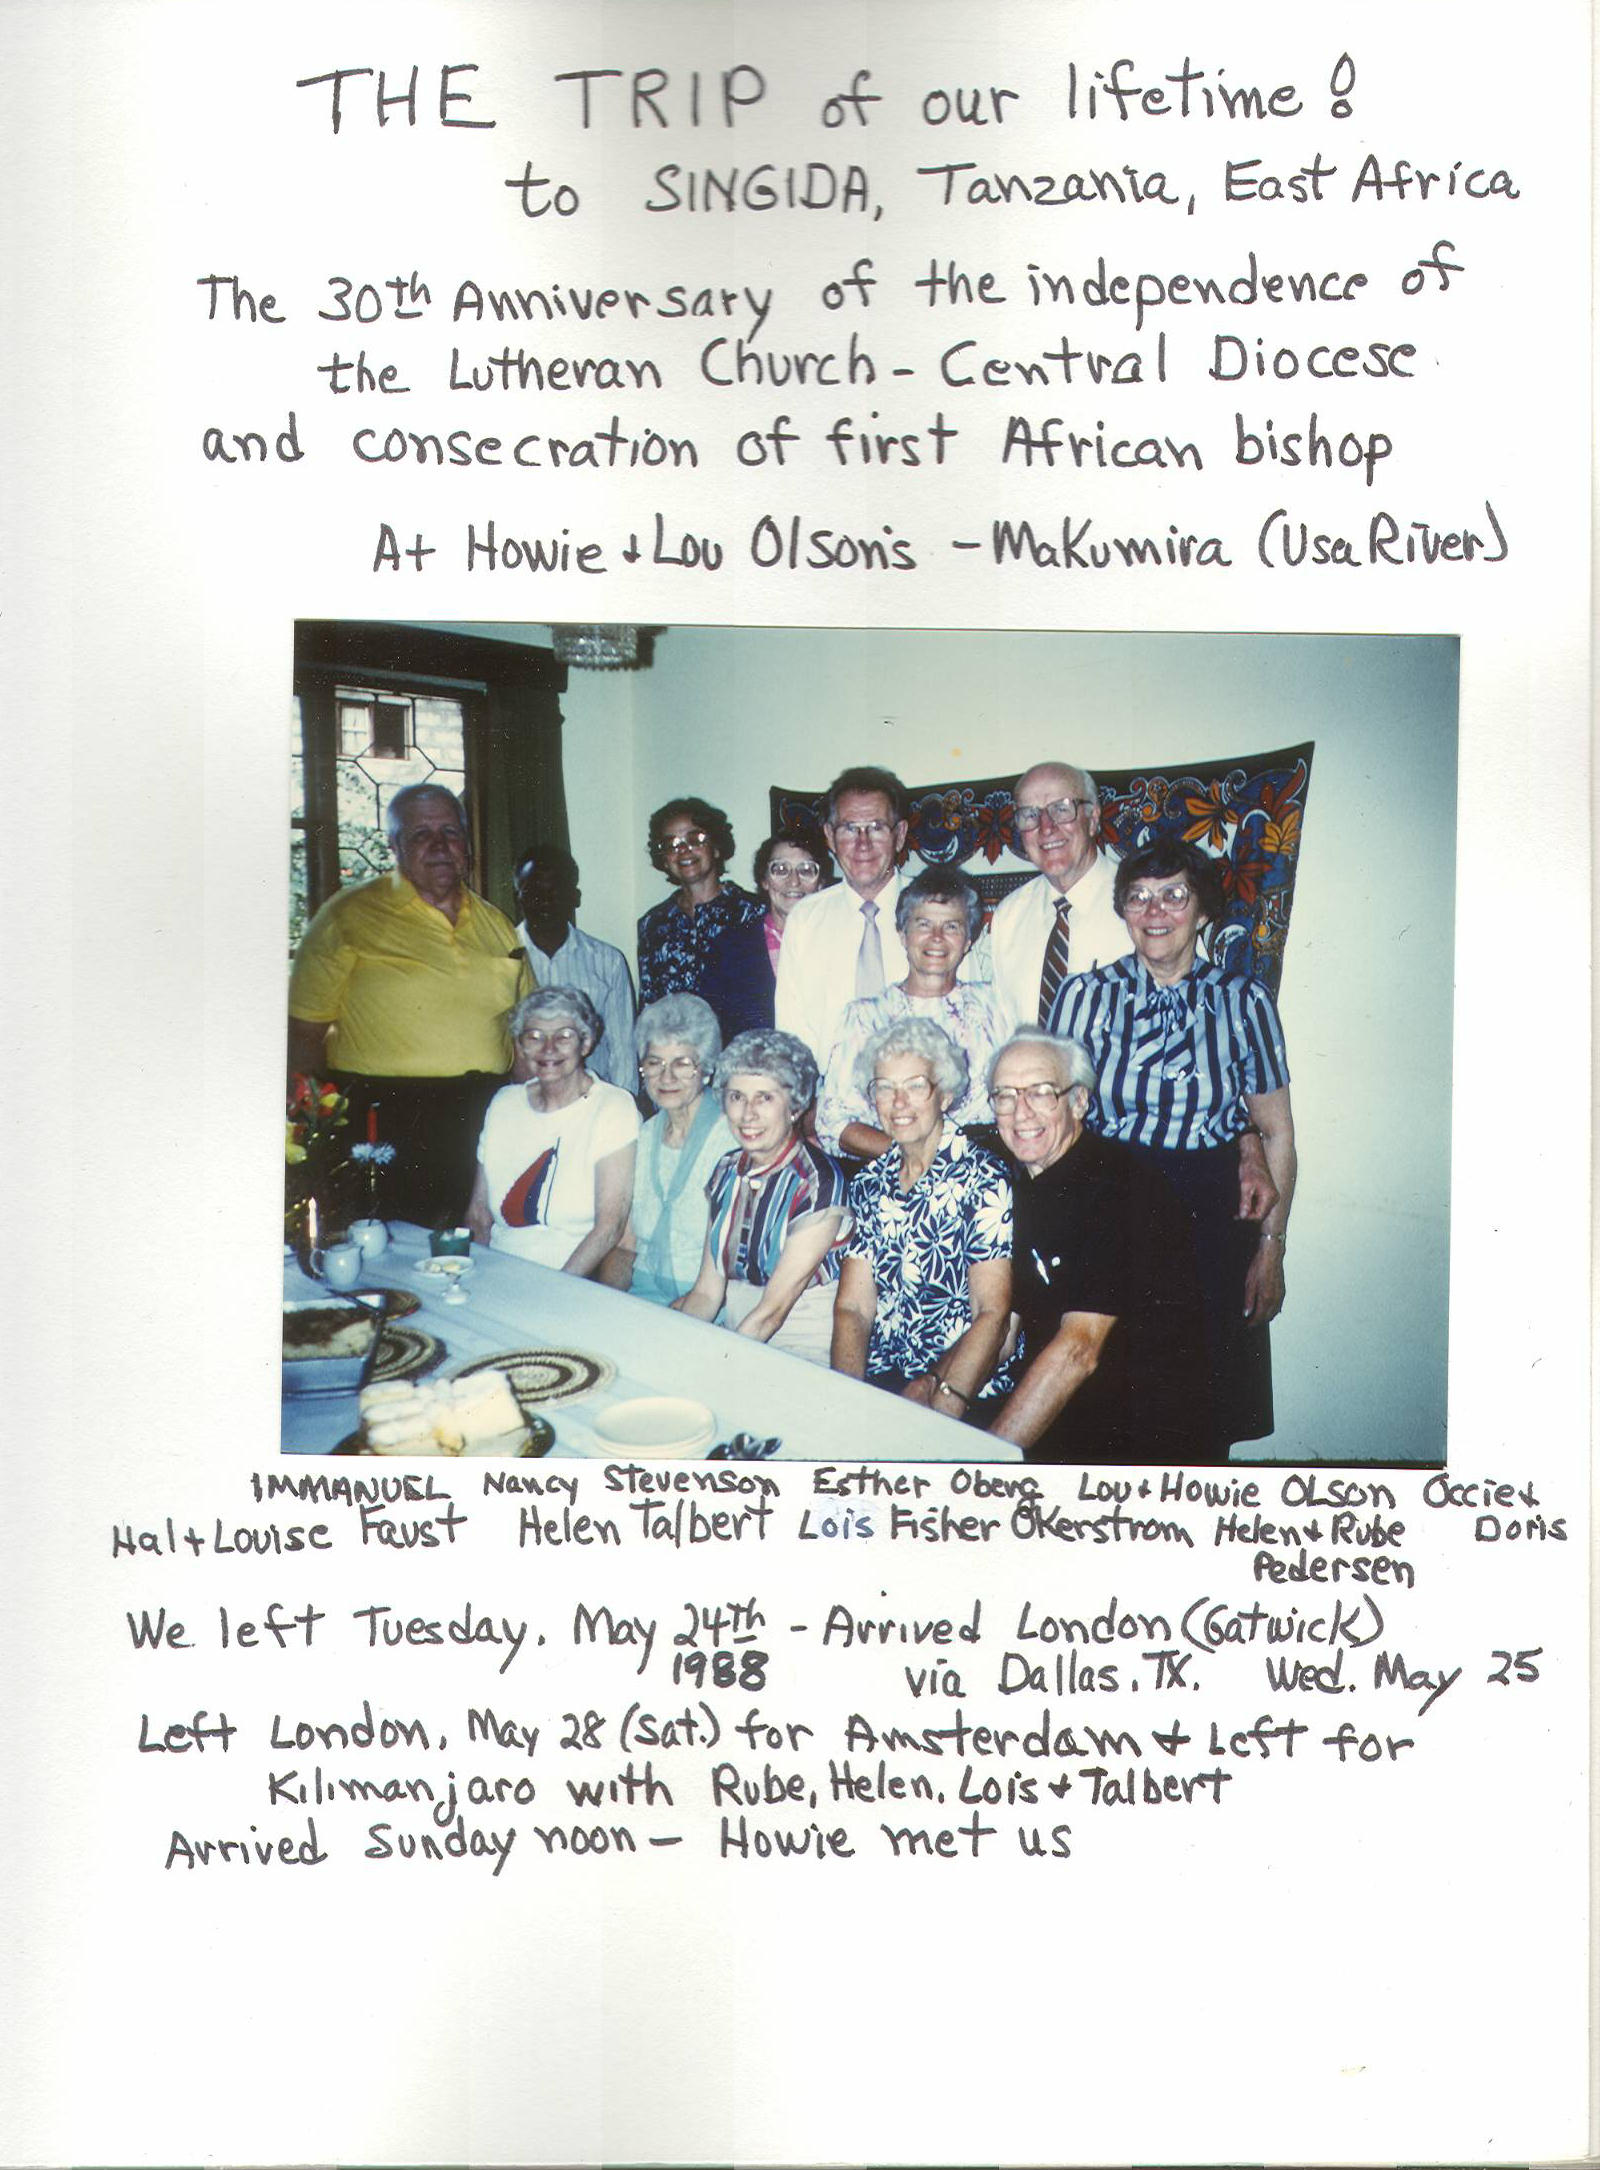 THE TRIP of our lifetime!
to SINGIDA, Tanzania, East Africa
The 30th Anniversary of the independence of
the Lutheran Church - Central Diocese
and consecration of first African bishop
At Howie & Lou Olson's - Makumira (Usa River)
IMMANUEL Nancy Stevenson Esther Oberg Lou & Howie OLson Occie &
Hal + Louise Faust Helen Talbert Lois Fisher Okerstrom Helen & Rube Doris
Pedersen
We left Tuesday, May 24th - Arrived London (Gatwick)
1988 via Dallas, TX. Wed. May 25
Left London, May 28 (Sat.) for Amsterdam & Left for
Kilimanjaro with Rube, Helen, Lois & Talbert
Arrived Sunday noon - Howie met us